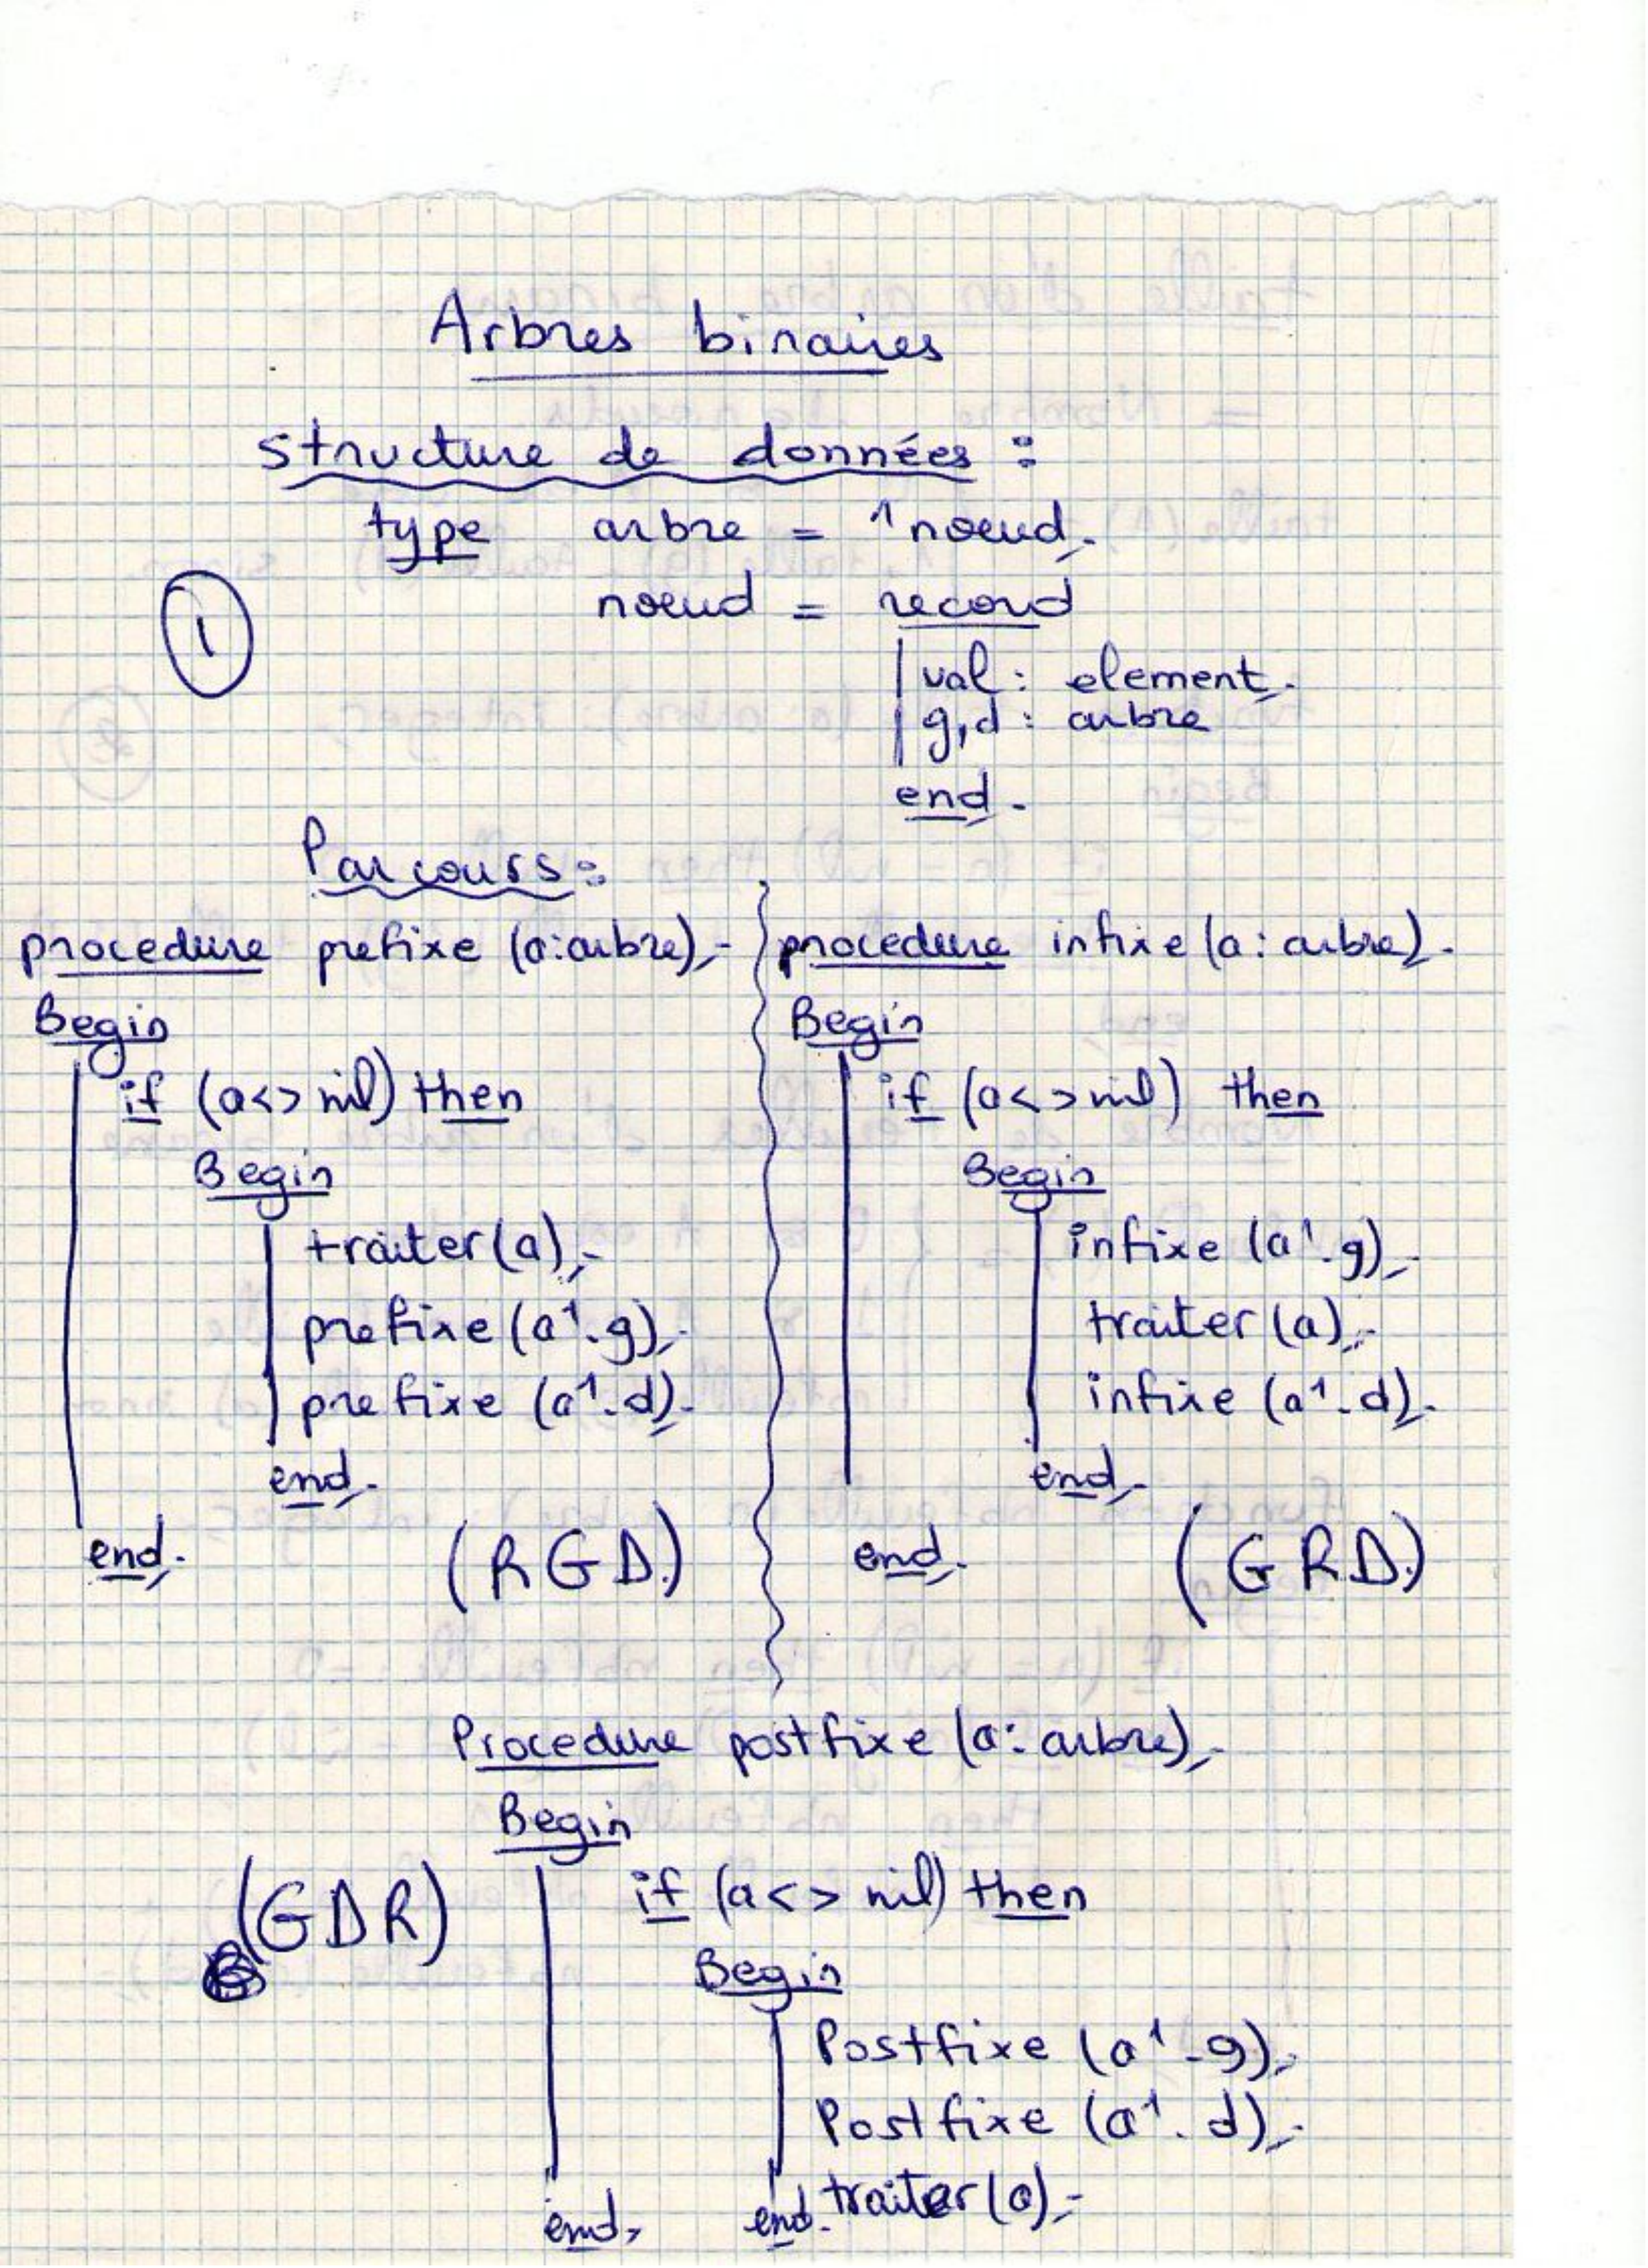 Arbres binaires
structure de données :
type arbre = ^noeud;
noeud = record
1
val : element;
g,d : arbre
end;
Parcours :
procedure prefixe (a:arbre);
Begin
if (a<>nil) then
Begin
traiter(a);
prefixe (a^.g);
prefixe (a^.d);
end;
end;
(RGD)
procedure infixe (a: arbre);
Begin
if (a<>nil) then
Begin
infixe (a^.g);
traiter (a);
infixe (a^.d);
end;
end;
(GRD)
Procedure postfixe (a: arbre);
Begin
(GDR)
if (a<> nil) then
Begin
Postfixe (a^.g);
Postfixe (a^.d);
traiter (a);
end;
end;